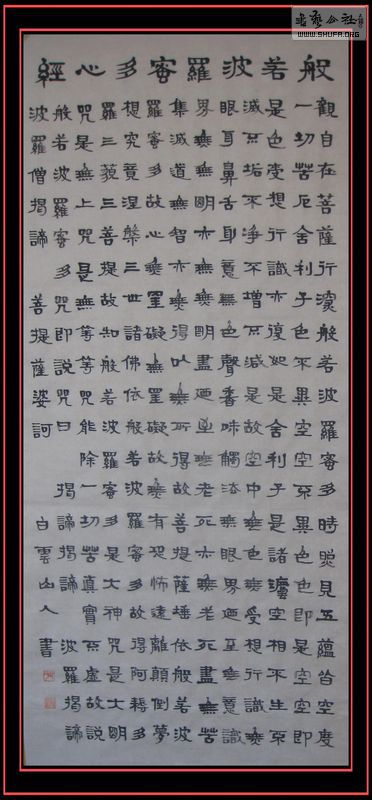 般若波羅蜜多心經
觀自在菩薩行深般若波羅蜜多時照見五蘊皆空度
一切苦厄舍利子色不異空空不異色色即是空空即
是色受想行識亦復如是舍利子是諸灋空相不生不
滅不垢不淨不增不減是故空中無色無受想行識無
眼耳鼻舌身意無色聲香味觸法無眼界廼至無意識
界無無明亦無無明盡廼至無老死亦無老死盡無苦
集滅道無智亦無得以無所得故菩提薩埵依般若波
羅蜜多故心無罣礙無罣礙故無有恐怖遠離顛倒夢
想究竟涅槃三世諸佛依般若波羅蜜多故得阿耨多
羅三藐三菩提故知般若波羅蜜多是大神咒是大明
咒是無上咒是無等等咒能除一切苦真實不虛故說
般若波羅蜜多咒即說咒曰 揭諦揭諦 波羅揭諦
波羅僧揭諦 菩提薩婆訶 白雲山人書
WWW.SHUFA.ORG